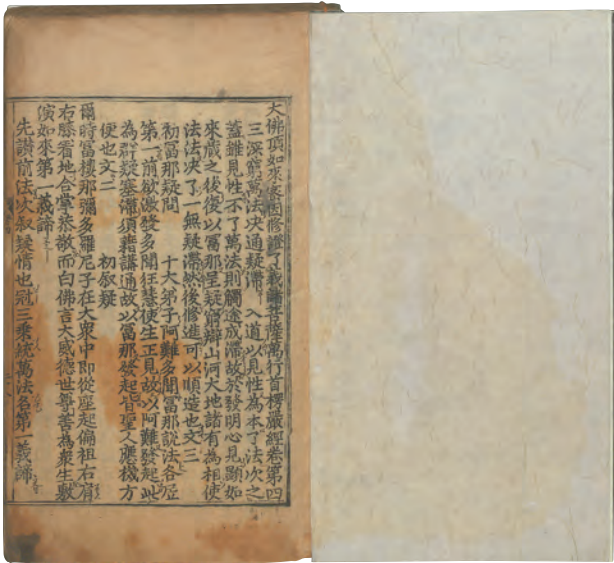 大佛頂如來密因修證了義諸菩薩萬行首楞嚴經卷第四
三深窮萬法決通疑滯 入道以見性為本了法次之
蓋雖見性不了萬法則觸途成滯故於發明心見顯如
來藏之後復以富那呈疑窮辯山河大地諸有為相使
法法决了一無疑滯然後修進可以順造也文三
初富那疑問 十大弟子阿難多聞富那說法各居
第一前欲激發多聞狂慧使生正見故以阿難發起此
為群疑塞滯須藉講通故以富那發起皆聖人應機方
便也文二 初叙疑
爾時富樓那彌多羅尼子在大衆中即從座起偏袒右肩
右膝着地合掌恭敬而白佛言大威德世尊善為衆生敷
演如來第一義諦
先讃前法次叙疑情也冠三乗統萬法名第一義諦